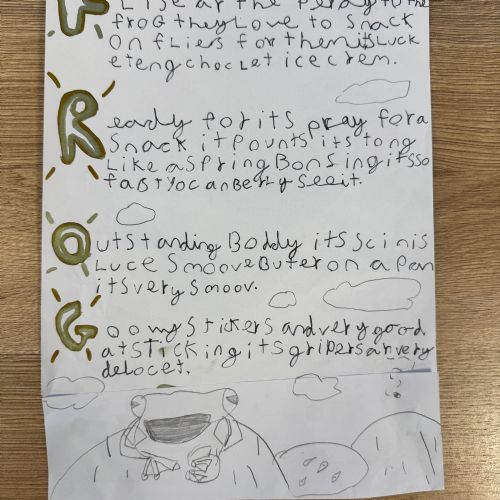 F lise ar the perdy to the
froG they Love to Snack
On fLies for themitsLuck
eteng chocLet ice crem.
R eady for its pray for a
Snack it Pounts its tong
Like a SPringBonSing itsso
faSt yocanBerLy Seeit.
O utstanding Boddy its Scinis
Luce SmooveButer on a Pan
itsverySmoov.
G oo my Stickers and very good
at Sticking itsgripersarvery
delocet.